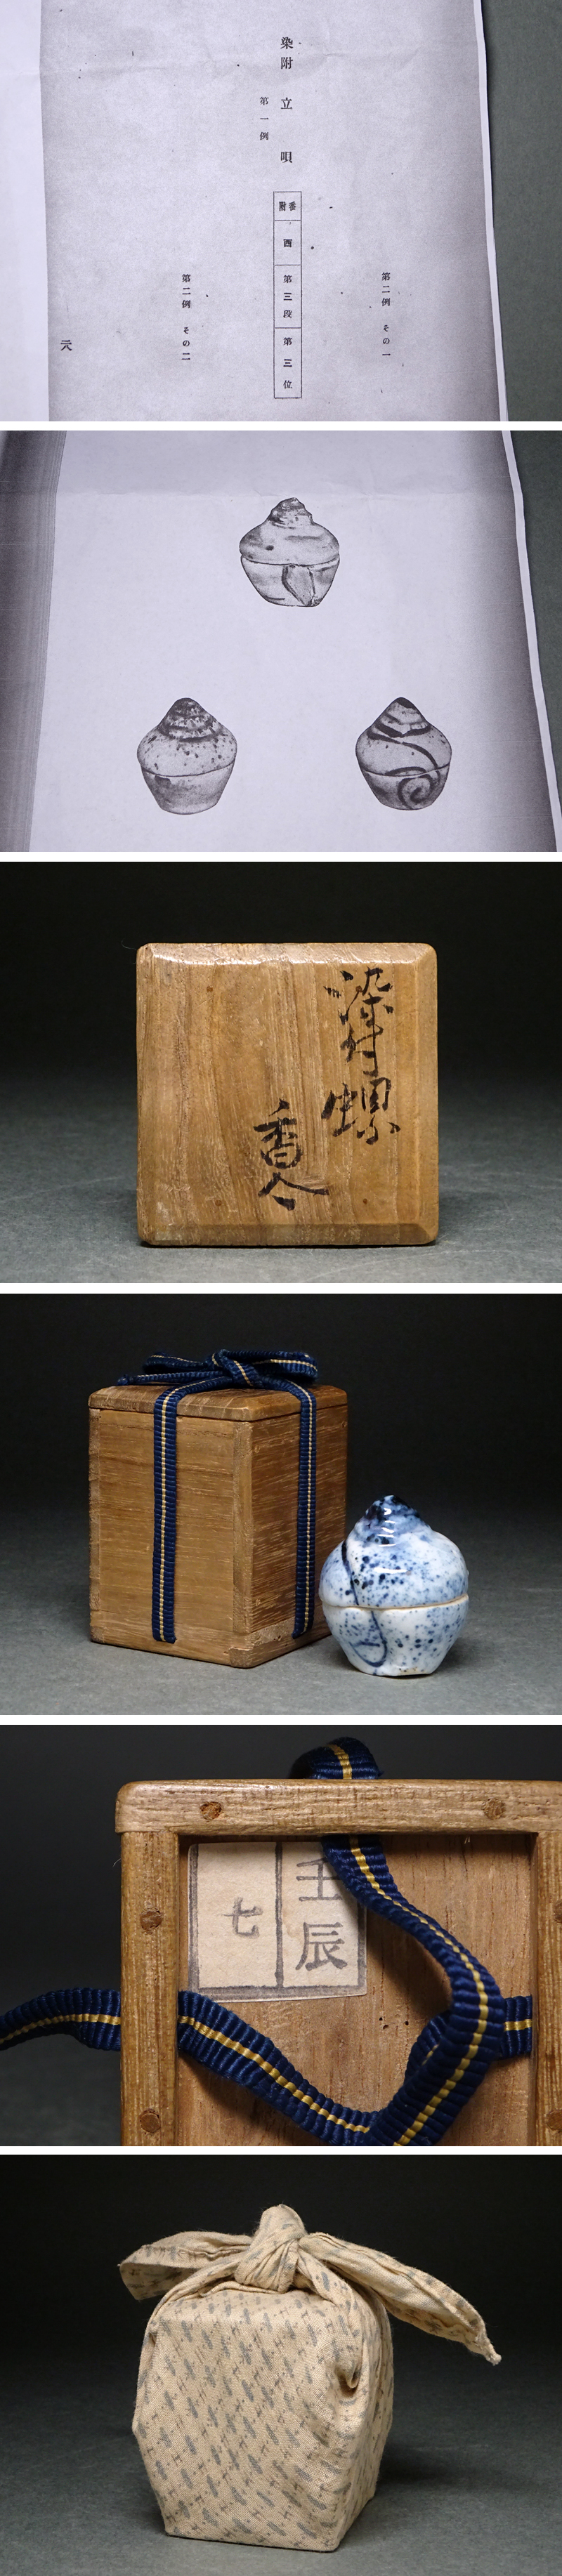 第二例 その一
染附 立 唄
番附 西 第三段 第三位
第一例
第二例 その二
染付 螺
香合
壬辰
七